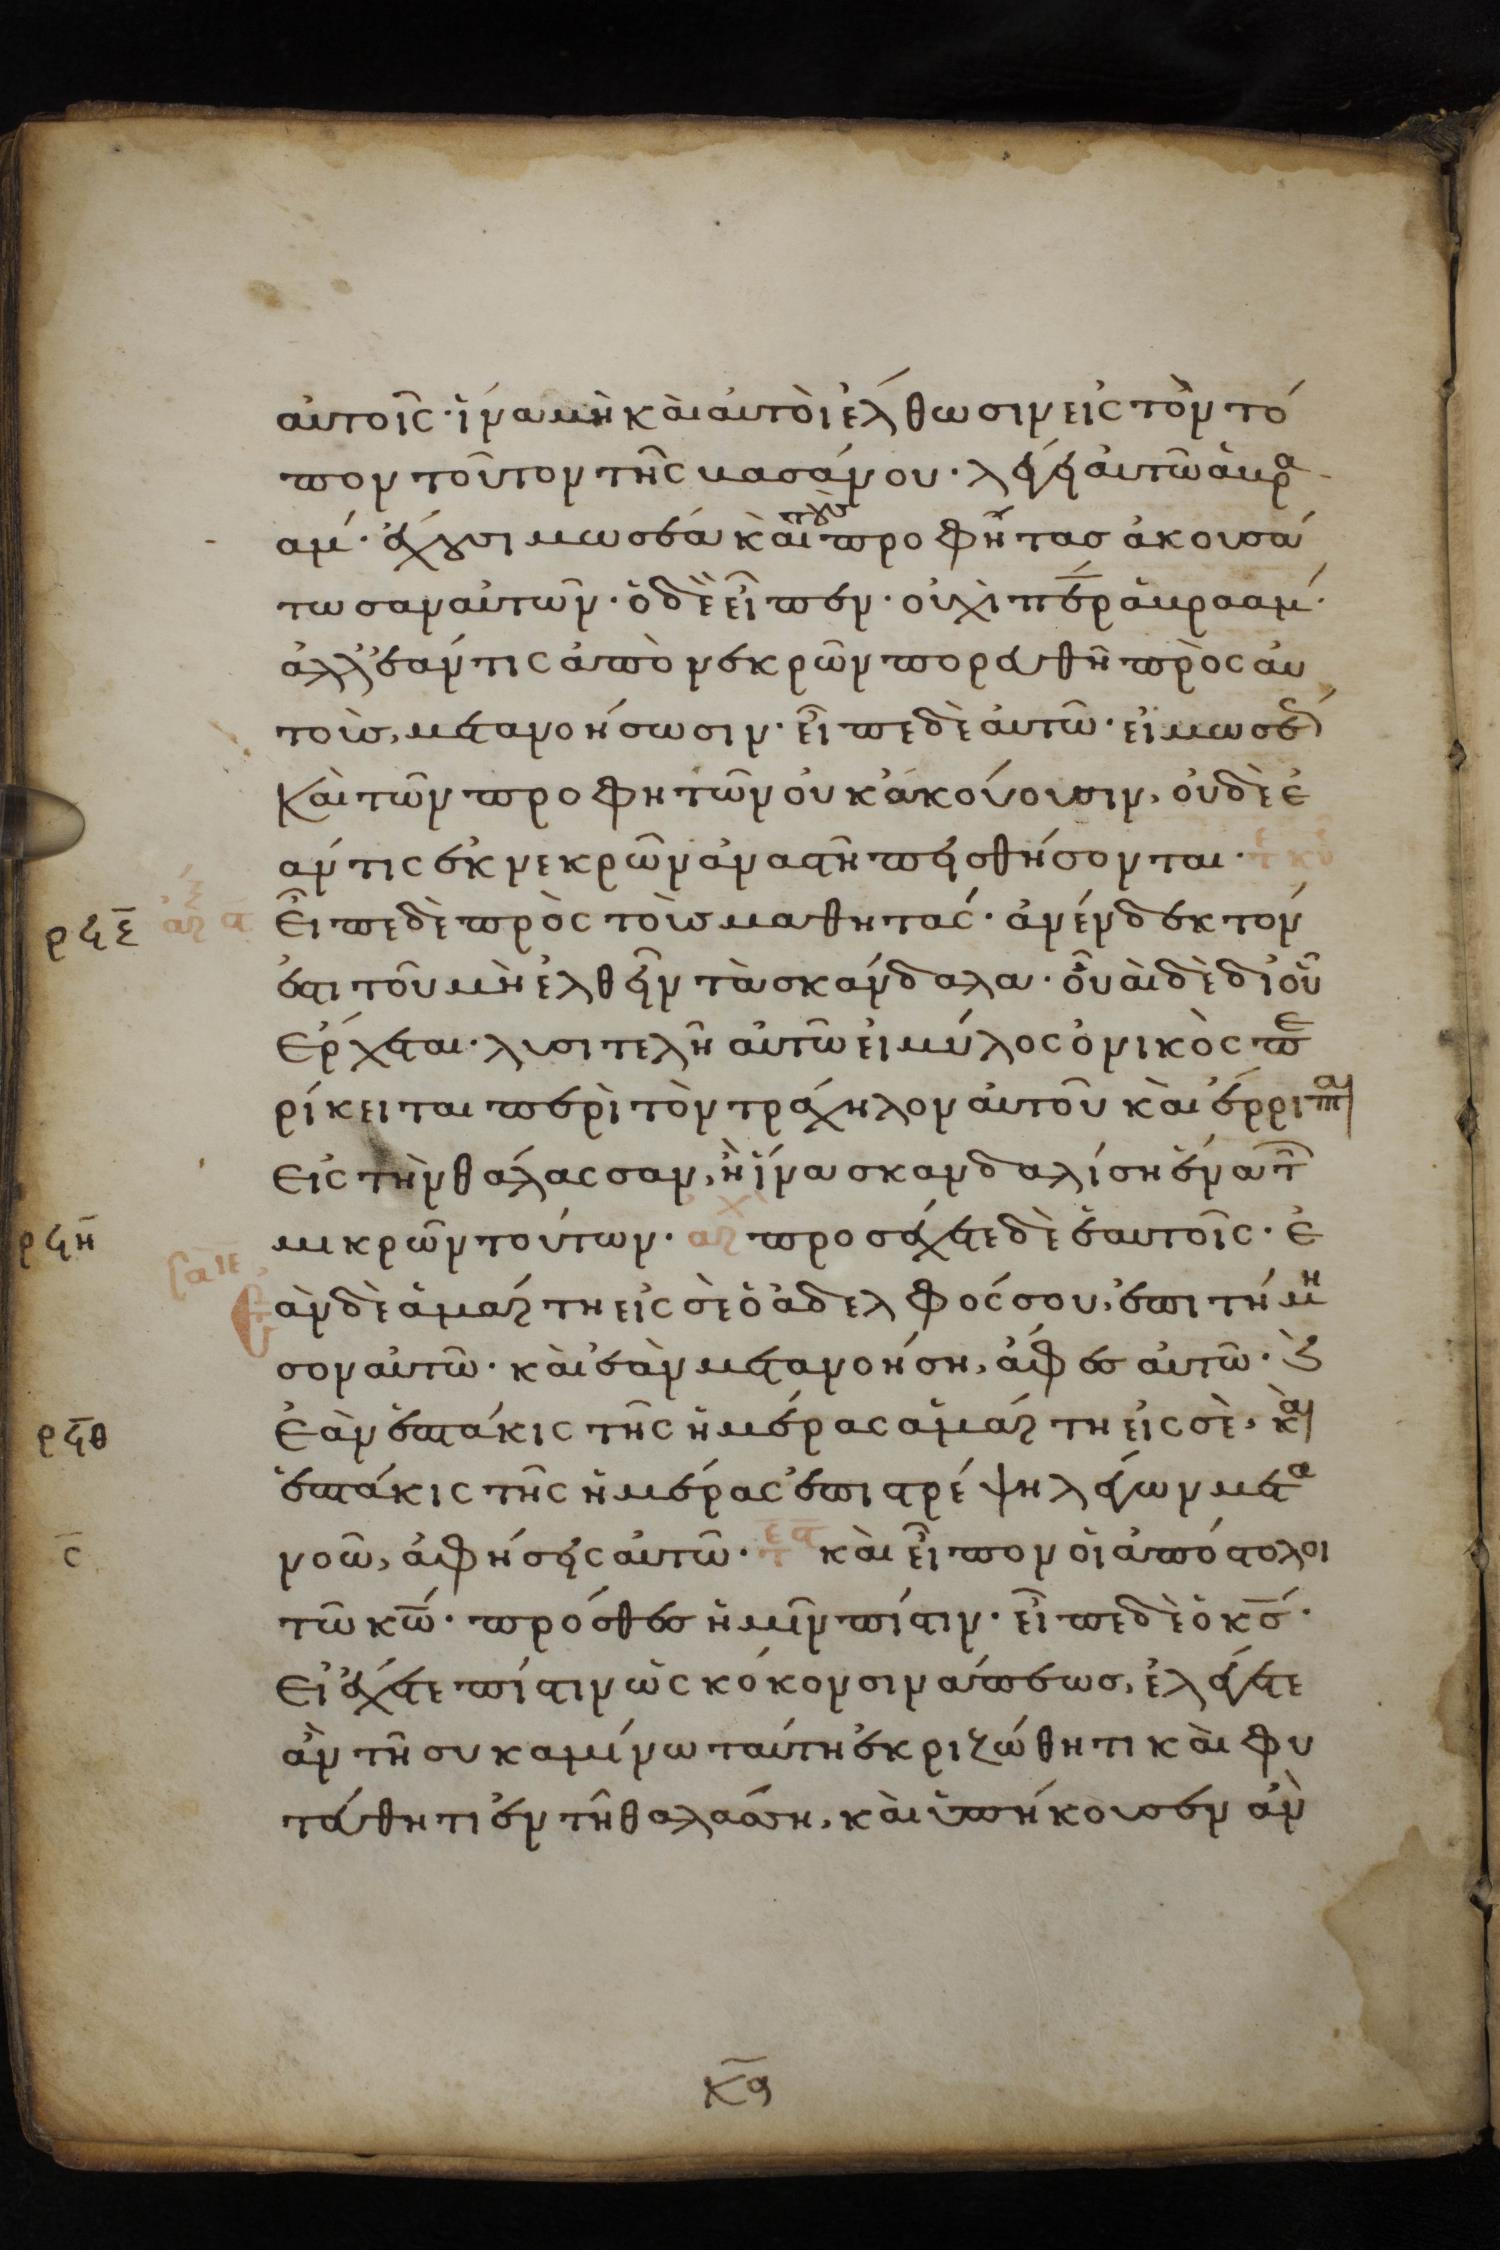 αὐτοῖς· ἵνα μὴ καὶ αὐτοὶ ἔλθωσιν εἰς τὸν τό
πον τοῦτον τῆς βασάνου· λέγει αὐτῶ ἀβρα
αμ· ἔχουσι μωσέα καὶ τοὺς προφήτας ἀκουσά
τωσαν αὐτῶν· ὁ δὲ εἶπεν· οὐχὶ περ ἀβρααμ·
ἀλλ' ἐάν τις ἀπὸ νεκρῶν πορευθῆ πρὸς αὐ
τοὺς, μετανοήσωσιν· εἶπε δὲ αὐτῶ· εἰ μωσέ
καὶ τῶν προφητῶν οὐκ ἀκούουσιν, οὐδὲ ἐ
άν τις ἐκ νεκρῶν ἀναστῆ πεισθήσονται·
ρϟζ Εἶπε δὲ πρὸς τοὺς μαθητάς· ἀνένδεκτόν
ἐστι τοῦ μὴ ἐλθεῖν τὰ σκάνδαλα· οὐαὶ δὲ δι οὗ
ἔρχεται· λυσιτελῆ αὐτῶ εἰ μύλος ὀνικὸς πε
ρίκειται περὶ τὸν τράχηλον αὐτοῦ καὶ ἔρριπται
εἰς τὴν θάλασσαν, ἢ ἵνα σκανδαλίση ἕνα τ
ρϟη μικρῶν τούτων· προσέχετε δὲ ἑαυτοῖς· ἐ
ὰν δὲ ἁμάρτη εἰς σὲ ὁ ἀδελφός σου, ἐπιτίμη
σον αὐτῶ· καὶ ἐὰν μετανοήση, ἄφες αὐτῶ· ϗ
ρϟθ ἐὰν ἑπτάκις τῆς ἡμέρας ἁμάρτη εἰς σὲ, καὶ
ἑπτάκις τῆς ἡμέρας ἐπιστρέψη λέγων μετα
ς νοῶ, ἀφήσεις αὐτῶ· καὶ εἶπον οἱ ἀπόστολοι
τῶ κω· πρόσθες ἡμῖν πίστιν· εἶπε δὲ ὁ κς·
Εἰ ἔχετε πίστιν ὡς κόκον σινάπεως, ἐλέγετε
ἂν τῆ συκαμίνω ταύτη ἐκριζώθητι καὶ φυ
τεύθητι ἐν τῆ θαλάσση, καὶ ὑπήκουσεν ἂν